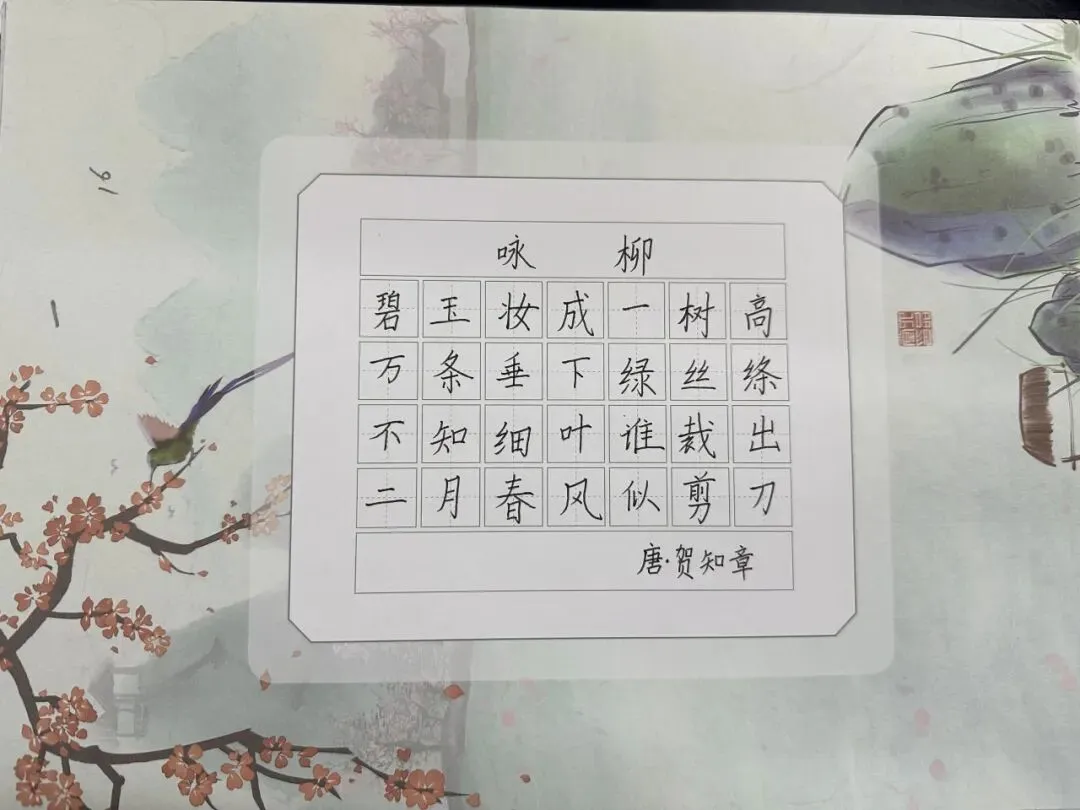 咏 柳
碧玉妆成一树高
万条垂下绿丝绦
不知细叶谁裁出
二月春风似剪刀
唐·贺知章
16
1